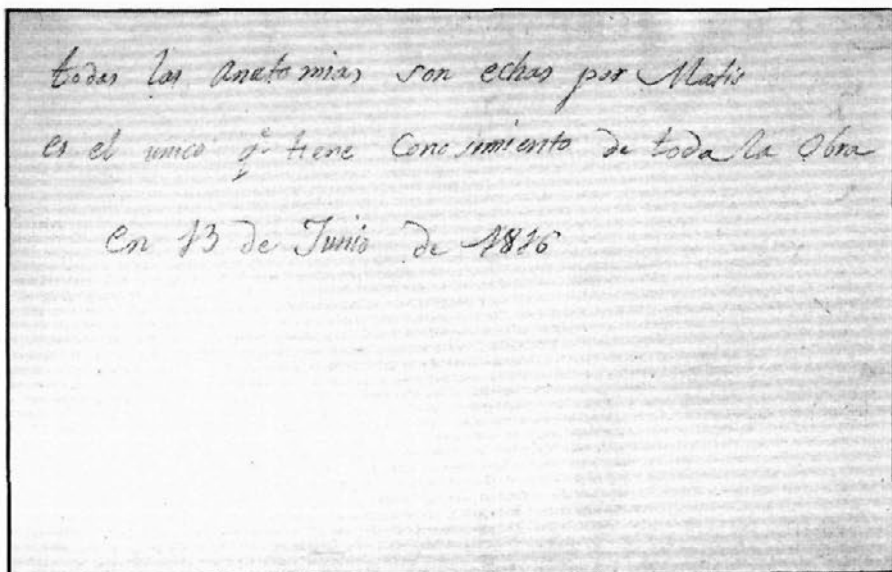 todas las anatomias son echas por Matis
es el unico qe tiene Conosimiento de toda la Obra
en 13 de Junio de 1816